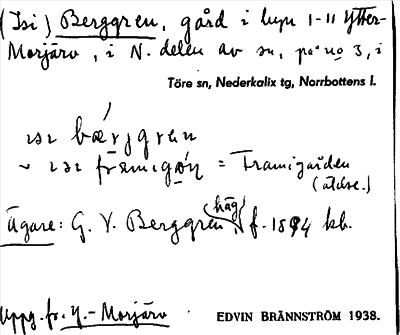 (Isi) Berggren, gård i byn 1-11 Ytter-
Morjärv, i N. delen av sn, på no 3, i
Töre sn, Nederkalix tg, Norrbottens l.
ɩsɩ
~ ɩsɩ = Framigården
(äldre.)
Ägare: G. V. Berggren, häg f. 1894 kb.
Uppg. fr. Y.-Morjärv
EDVIN BRÄNNSTRÖM 1938.